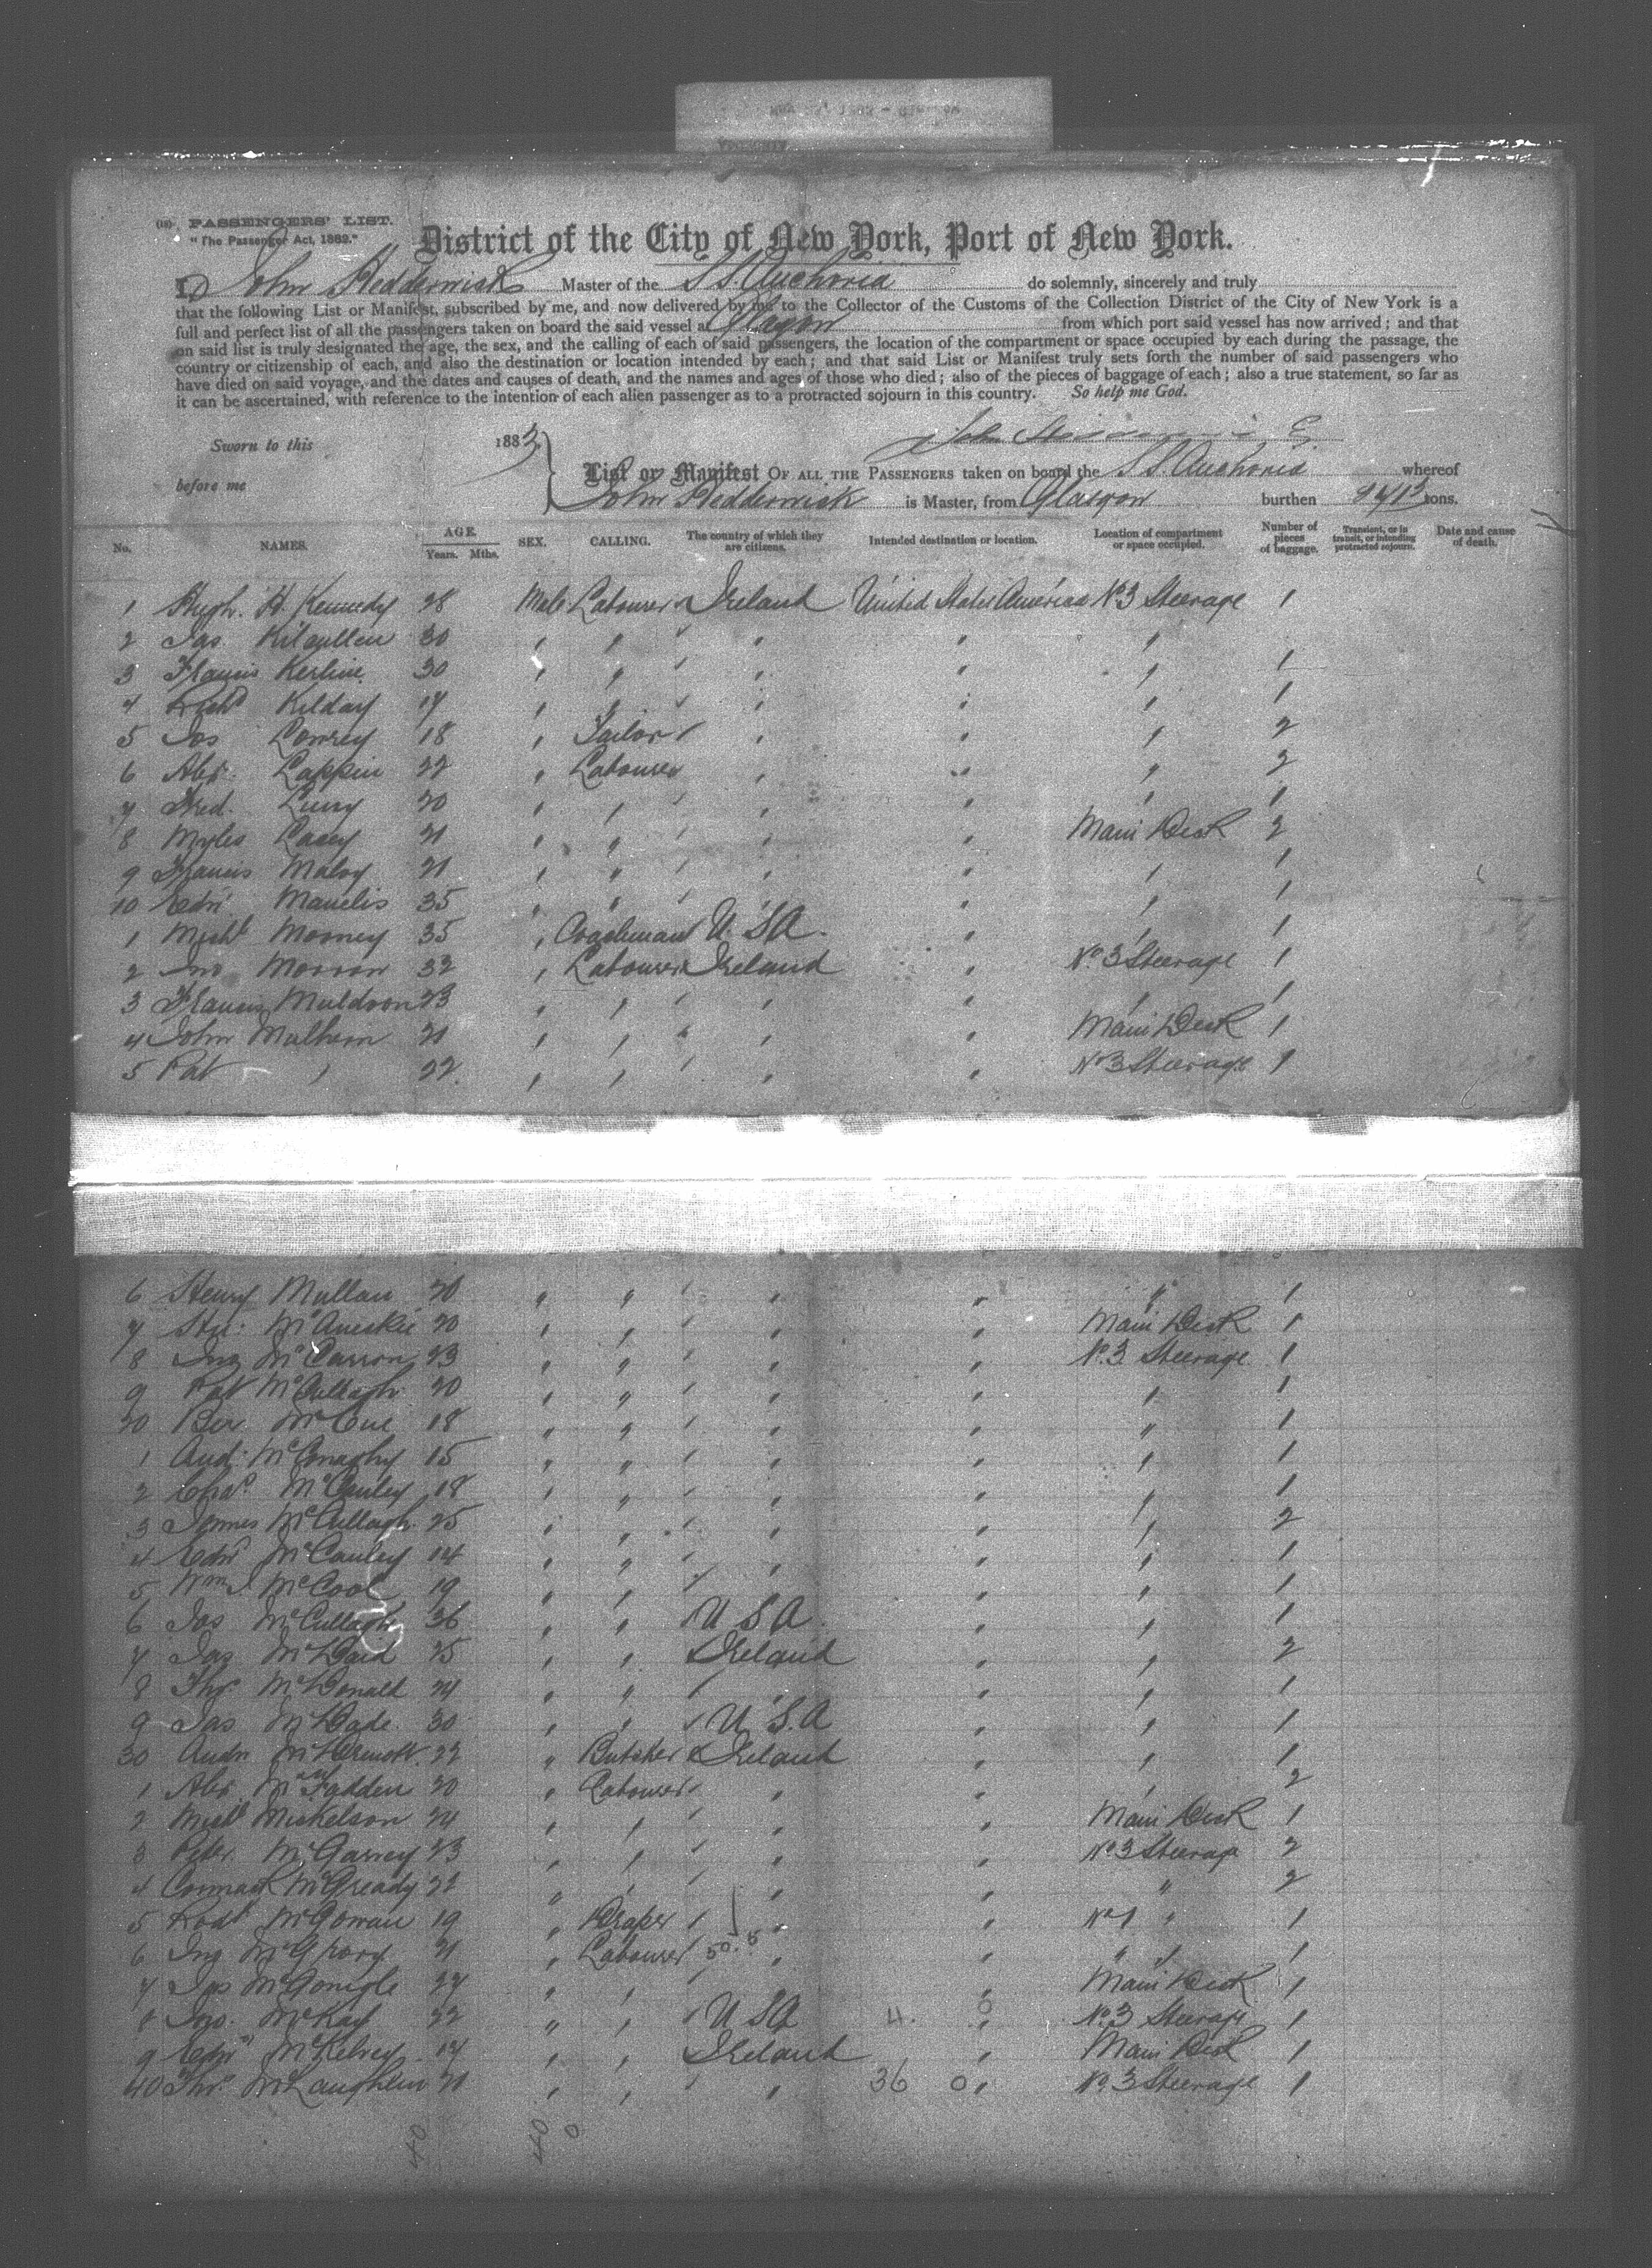 PASSENGERS' LIST.
"The Passenger Act, 1882."
District of the City of New York, Port of New York.
I, John Hedderwick Master of the S.S. Anchoria do solemnly, sincerely and truly
that the following List or Manifest, subscribed by me, and now delivered by me to the Collector of the Customs of the Collection District of the City of New York is a
full and perfect list of all the passengers taken on board the said vessel at Glasgow from which port said vessel has now arrived; and that
on said list is truly designated the age, the sex, and the calling of each of said passengers, the location of the compartment or space occupied by each during the passage, the
country or citizenship of each, and also the destination or location intended by each; and that said List or Manifest truly sets forth the number of said passengers who
have died on said voyage, and the dates and causes of death, and the names and ages of those who died; also of the pieces of baggage of each; also a true statement, so far as
it can be ascertained, with reference to the intention of each alien passenger as to a protracted sojourn in this country. So help me God.
Sworn to this 1883
before me
List or Manifest OF ALL THE PASSENGERS taken on board the S.S. Anchoria whereof
John Hedderwick is Master, from Glasgow burthen tons.
No. NAMES. AGE. Years. Mths. SEX. CALLING. The country of which they are citizens. Intended destination or location. Location of compartment or space occupied. Number of pieces of baggage. Transient, or in transit, or intending protracted sojourn. Date and cause of death.
1 Hugh H. Kennedy 28 Male Labourer Ireland United States America No 3 Steerage 1
2 Jas Kilcullen 30 " " " " "
3 Francis Kerline 30 " " " " " 1
4 Richd Kilday 17 " " " " " 1
5 Jas Lowrey 18 " Tailor " " " 2
6 Abr. Lappin 22 " Labourer " " " 2
7 Fred. Lurry 20 " " " " " 1
8 Myles Lacey 21 " " " " Main Deck 2
9 Francis Maloy 21 " " " " " 1
10 Edwd 35 " " " " " 1
1 Michl Mooney 35 " Coachman U.S.A. " " 1
2 Jno Morron 32 " Labourer Ireland " No 3 Steerage 1
3 Francis Muldoon 23 " " " " " 1
4 John Mulhern 21 " " " " Main Deck 1
5 Pat " 22 " " " " No 3 Steerage 1
6 Henry Mullan 20 " " " " " 1
7 McAneskie 20 " " " " Main Deck 1
8 Jno McCarron 23 " " " " No. 3 Steerage 1
9 Pat McCullagh 20 " " " " " 1
20 Ber. McCue 18 " " " " " 1
1 And. McConaghy 15 " " " " " 1
2 Chas McCauley 18 " " " " " 1
3 James McCullagh 25 " " " " " 2
4 Edwd McCauley 14 " " " " " 1
5 Wm J. McCool 19 " " " " " 1
6 Jas McCullagh 36 " " U S A " " 1
7 Jas McDaid 25 " " Ireland " " 2
8 Thos McDonald 24 " " " " " 1
9 Jas McDade 30 " " U.S.A " " 1
30 Andw McDermott 22 " Butcher Ireland " " 1
1 Abr. McFadden 20 " Labourer " " " 2
2 Michl Mickelson 24 " " " " Main Deck 1
3 Peter McGarvey 23 " " " " No 3 Steerage 2
4 Cormack McGready 22 " " " " " 2
5 Robt McGowan 19 " Draper " " No 1 " 1
6 Jno McGrory 21 " Labourer 50.5 " " " " 1
7 Jas McGonigle 27 " " " " Main Deck 1
8 Jno. McKay 22 " " U S A 4. 0 " No. 3 Steerage 1
9 Edwd McKelvey 17 " " Ireland " Main Deck 1
40 Thos McLaughlin 21 " " " 36 0 " No. 3 Steerage 1
40 40 0